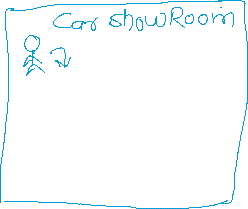 Car ShowRoom